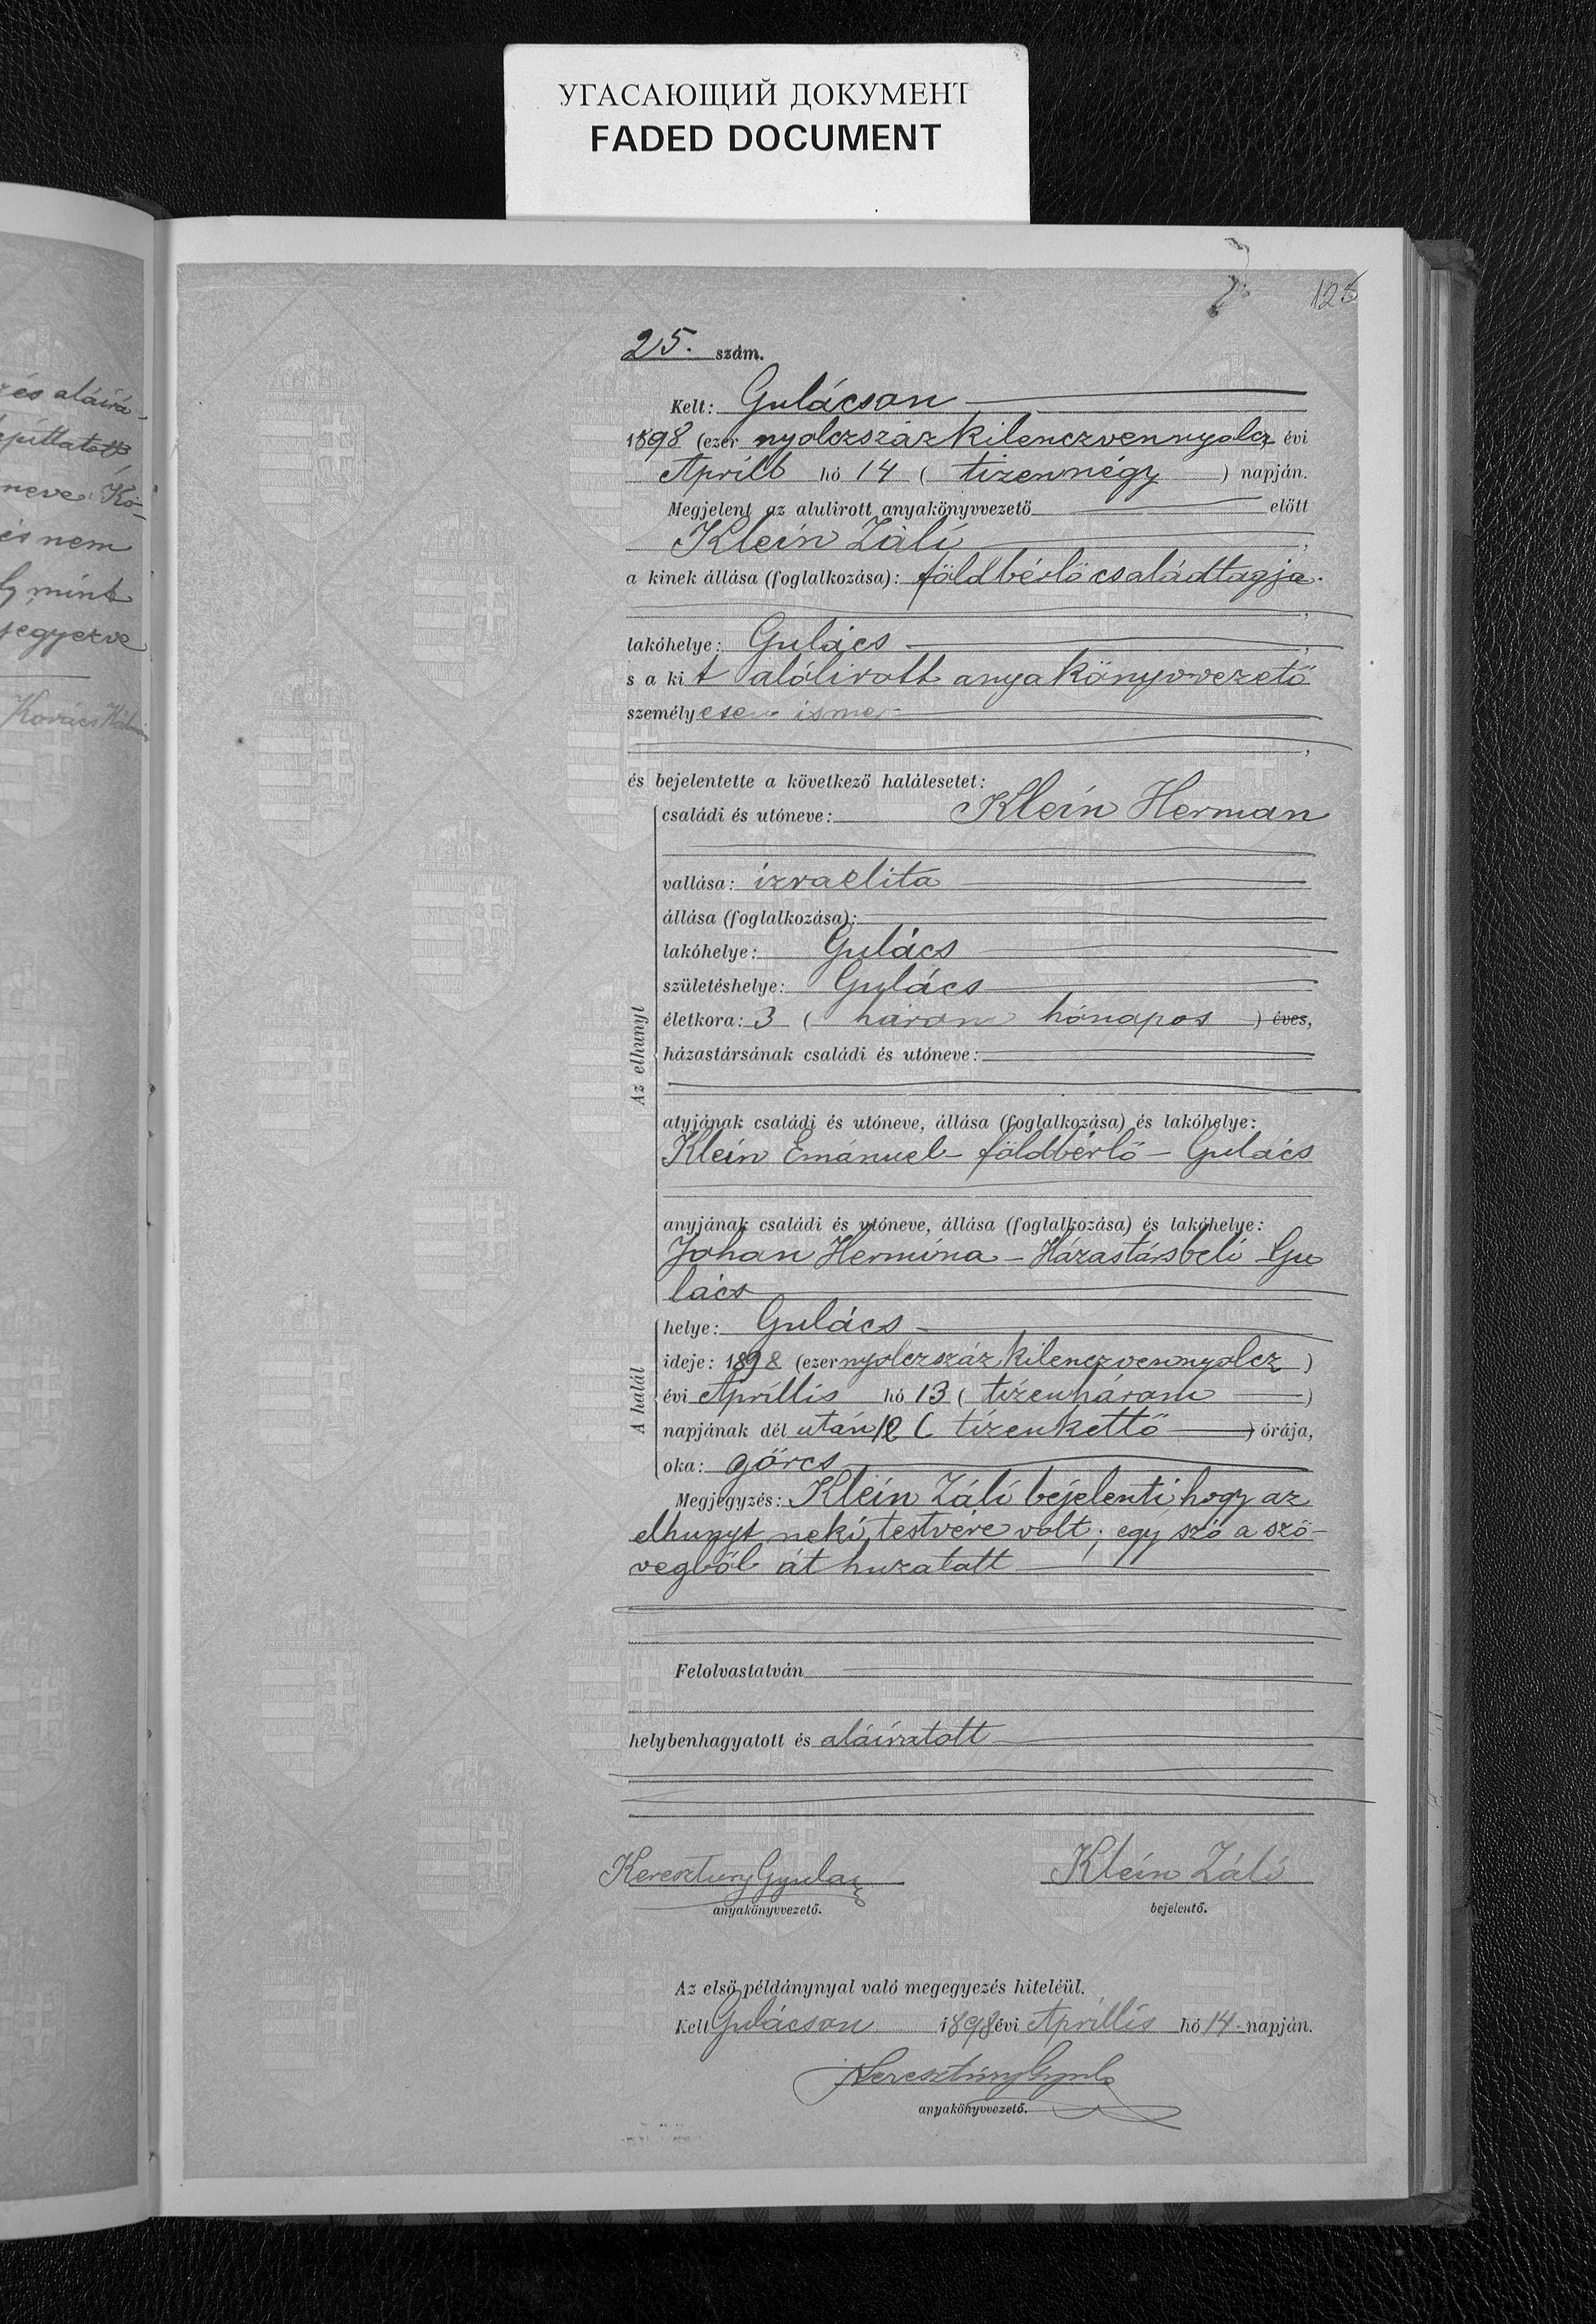 УГАСАЮЩИЙ ДОКУМЕНТ
FADED DOCUMENT
és aláirá-
neve Kö-
és nem
mint
jegyezve
Kovács
125
25. szám.
Kelt: Gulácson
1898 (ezer nyolczszáz kilenczvennyolcz évi
Áprill hó 14 (tizennégy) napján.
Megjelent az alulirott anyakönyvvezető előtt
Klein Záli,
a kinek állása (foglalkozása): földbérlő családtagja.
lakóhelye: Gulács,
s a kit alólirott anyakönyvvezető
személyesen ismer
és bejelentette a következő halálesetet:
Az elhunyt
családi és utóneve: Klein Herman
vallása: izraelita
állása (foglalkozása):
lakóhelye: Gulács
születéshelye: Gulács
életkora: 3 (három hónapos) éves,
házastársának családi és utóneve:
atyjának családi és utóneve, állása (foglalkozása) és lakóhelye:
Klein Emánuel - földbérlő - Gulács
anyjának családi és utóneve, állása (foglalkozása) és lakóhelye:
Johan Hermina - Házastársbeli Gu
lács
A halál
helye: Gulács
ideje: 1898 (ezer nyolczszáz kilenczvennyolcz)
évi Áprillis hó 13 (tizenhárom)
napjának dél után 12 (tizenkettő) órája,
oka: görcs
Megjegyzés: Klein Záli bejelenti hogy az
elhunyt neki testvére volt; egy szó a szö-
vegből át huzatott
Felolvastatván
helybenhagyatott és aláiratott
Keresztury Gyula
anyakönyvvezető.
Klein Záli
bejelentő.
Az első példánynyal való megegyezés hiteléül.
Kelt Gulácson 1898 évi Áprillis hó 14 napján.
Keresztúry Gyula
anyakönyvvezető.